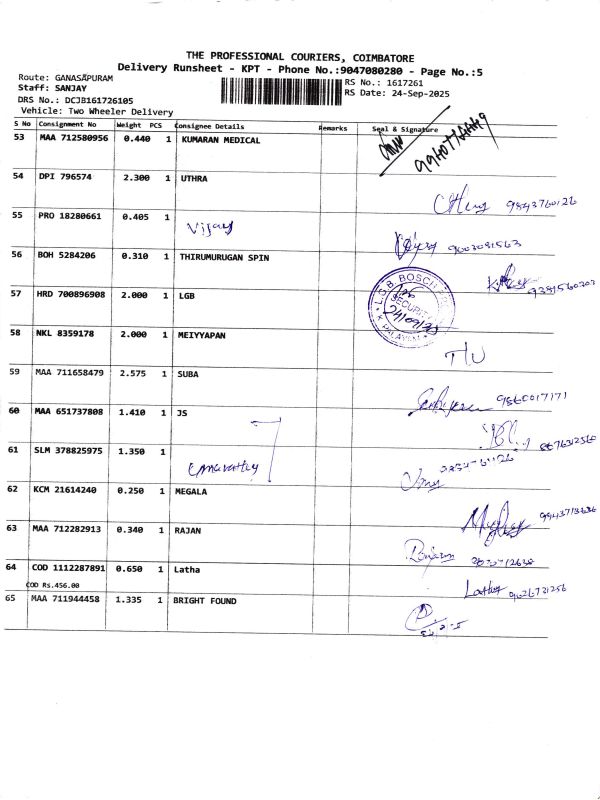 THE PROFESSIONAL COURIERS, COIMBATORE
Delivery Runsheet - KPT - Phone No.:9047080280 - Page No.:5
Route: GANASAPURAM
Staff: SANJAY
DRS No.: DCJB161726105
Vehicle: Two Wheeler Delivery
RS No.: 1617261
RS Date: 24-Sep-2025
S No Consignment No Weight PCS Consignee Details Remarks Seal & Signature
53 MAA 712580956 0.440 1 KUMARAN MEDICAL
54 DPI 796574 2.300 1 UTHRA 9843760126
55 PRO 18280661 0.405 1 Vijay 9003091563
56 BOH 5284206 0.310 1 THIRUMURUGAN SPIN 9381560303
57 HRD 700896908 2.000 1 LGB
L.G.B BOSCH SECURITY 24/09/25 K PALAYAM
58 NKL 8359178 2.000 1 MEIYYAPAN
59 MAA 711658479 2.575 1 SUBA
60 MAA 651737808 1.410 1 JS
61 SLM 378825975 1.350 1
62 KCM 21614240 0.250 1 MEGALA
63 MAA 712282913 0.340 1 RAJAN
64 COD 1112287891 0.650 1 Latha Latha 9626731256
COD Rs.456.00
65 MAA 711944458 1.335 1 BRIGHT FOUND